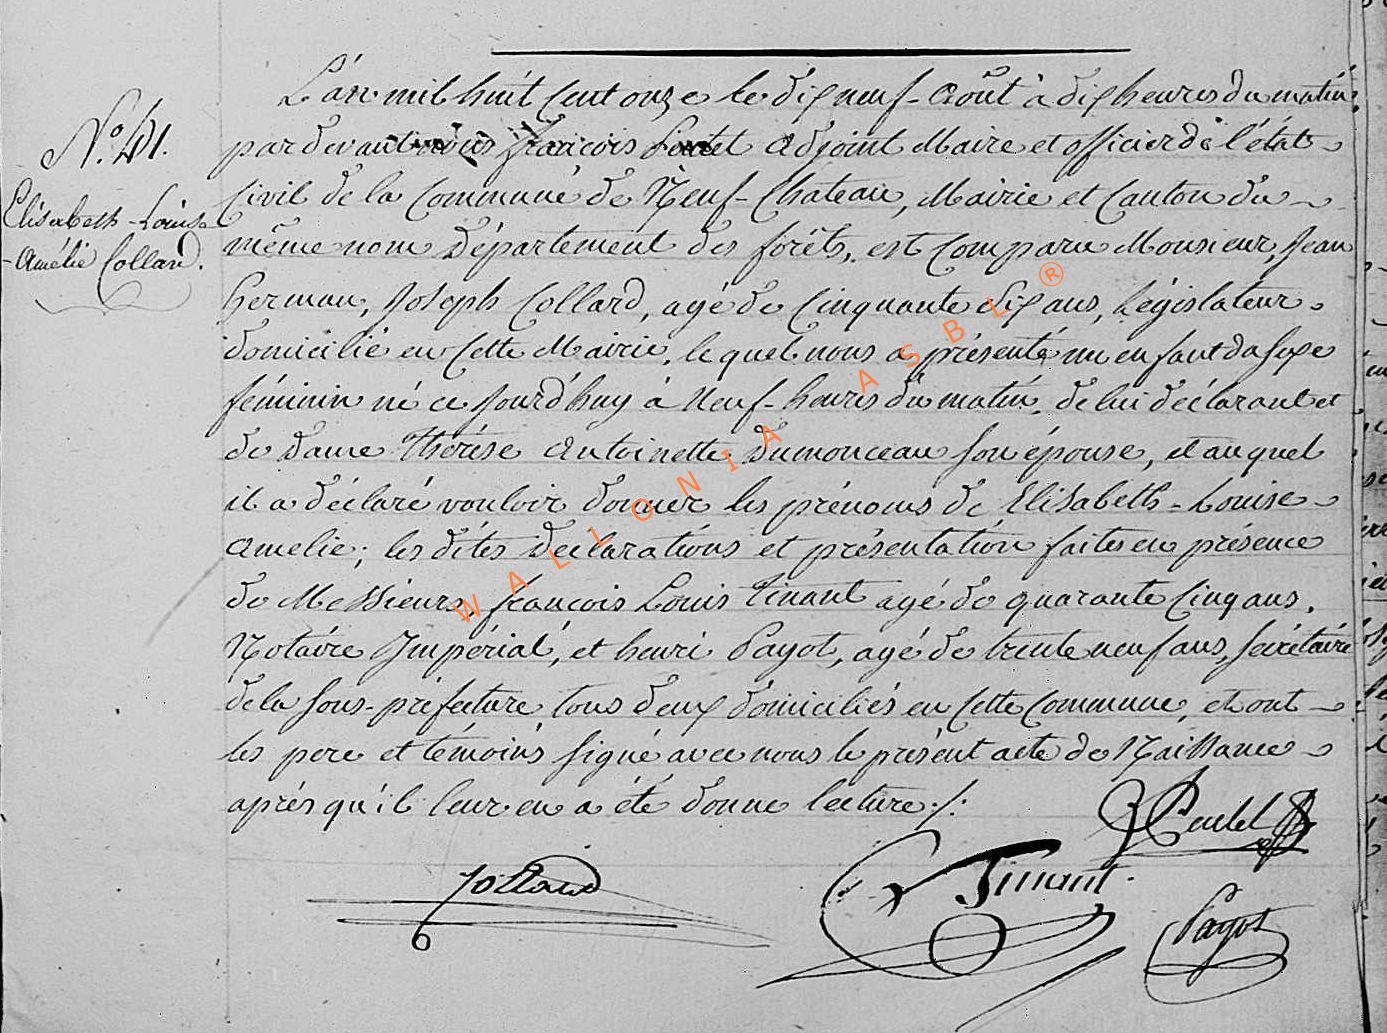 N.° 41.
Elisabeth-Louise
-Amélie Collard.
L'an mil huit cent onze le dix neuf août à dix heures du matin,
par devant nous François Poulet adjoint Maire et officier de l'état
Civil de la Commune de Neuf-Chateau, Mairie et Canton du
même nom Département des forêts, est comparu Monsieur, Jean
herman, Joseph Collard, agé de Cinquante dix ans, Législateur
domicilié en Cette Mairie, le quel nous a présenté un enfant du sexe
féminin né ce jourd'huy à Neuf-heures du matin, de lui déclarant et
de Dame Thérèse Antoinette Dumonceau son épouse, et auquel
il a déclaré vouloir donner les prénoms de Elisabeth-Louise-
Amelie; les dites declarations et présentation faites en présence
de Messieurs, françois Louis Tinant agé de quarante Cinq ans,
Notaire Impérial, et henri Payot, agé de trente neuf ans, secrétaire
de la sous-préfecture, tous deux domiciliés en Cette Commune, et ont
les pere et témoins signé avec nous le présent acte de Naissance
après qu'il leur en a été donné lecture ./.
Poulet
Collard
Tinant
Payot
WALLONIA ASBL ®